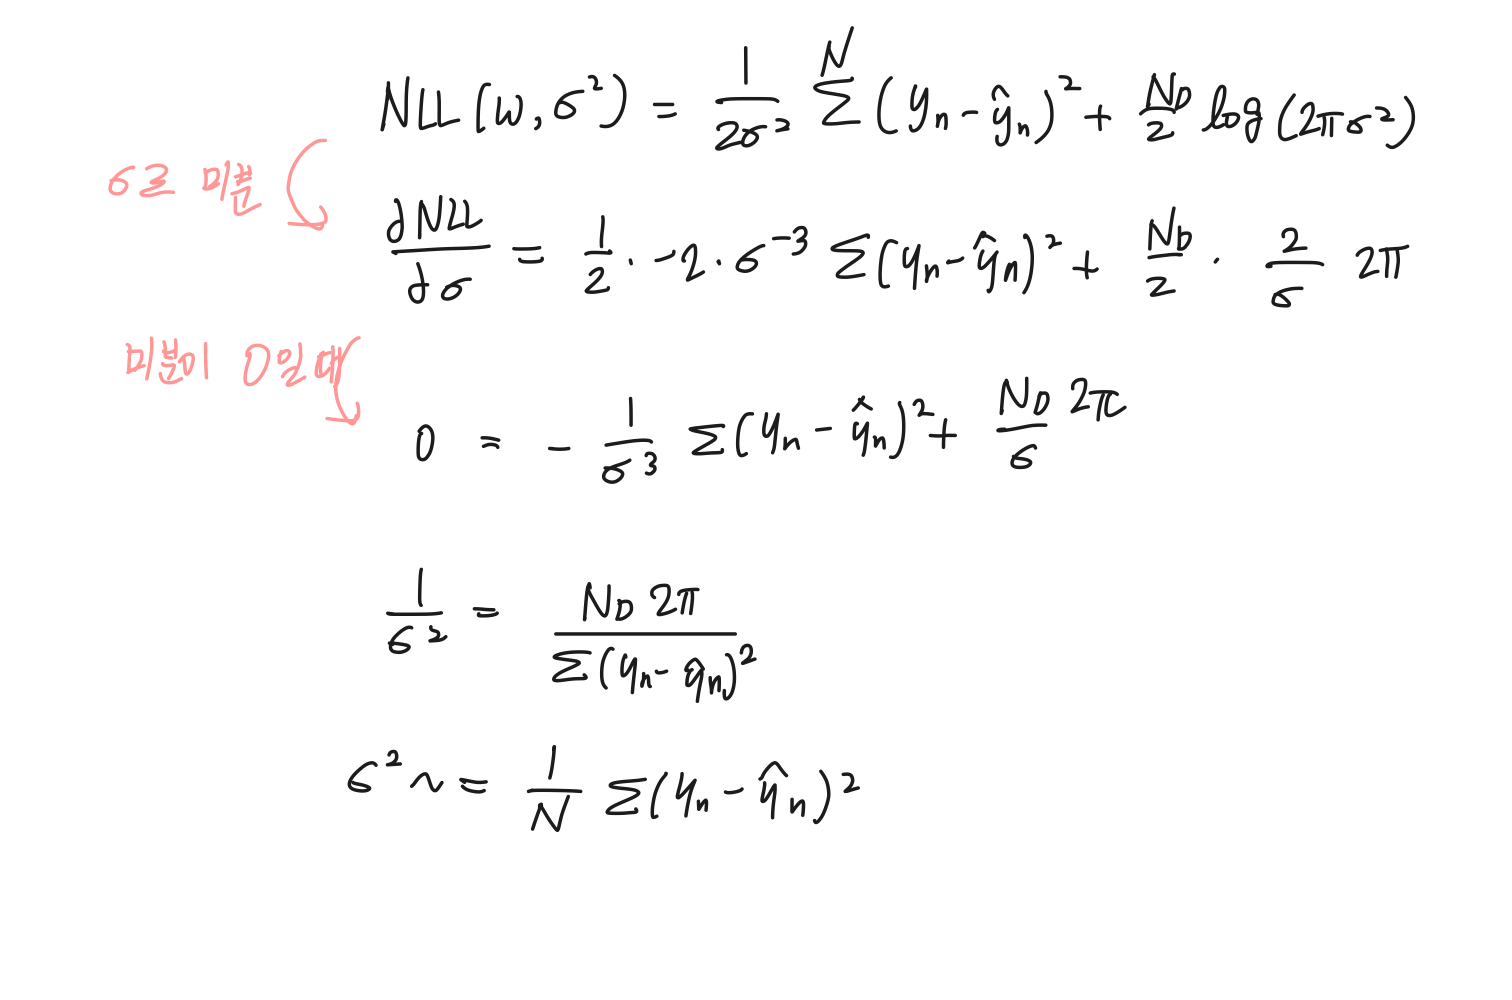 NLL(w, σ²) = 1/2σ² Σ^N (yₙ - ŷₙ)² + N_D/2 log(2πσ²)
σ로 미분
dNLL/dσ = 1/2 · -2 · σ⁻³ Σ(yₙ - ŷₙ)² + N_D/2 · 2/σ 2π
미분이 0일때
0 = - 1/σ³ Σ(yₙ - ŷₙ)² + N_D 2π/σ
1/σ² = N_D 2π/Σ(yₙ - ŷₙ)²
σ² ~= 1/N Σ(yₙ - ŷₙ)²